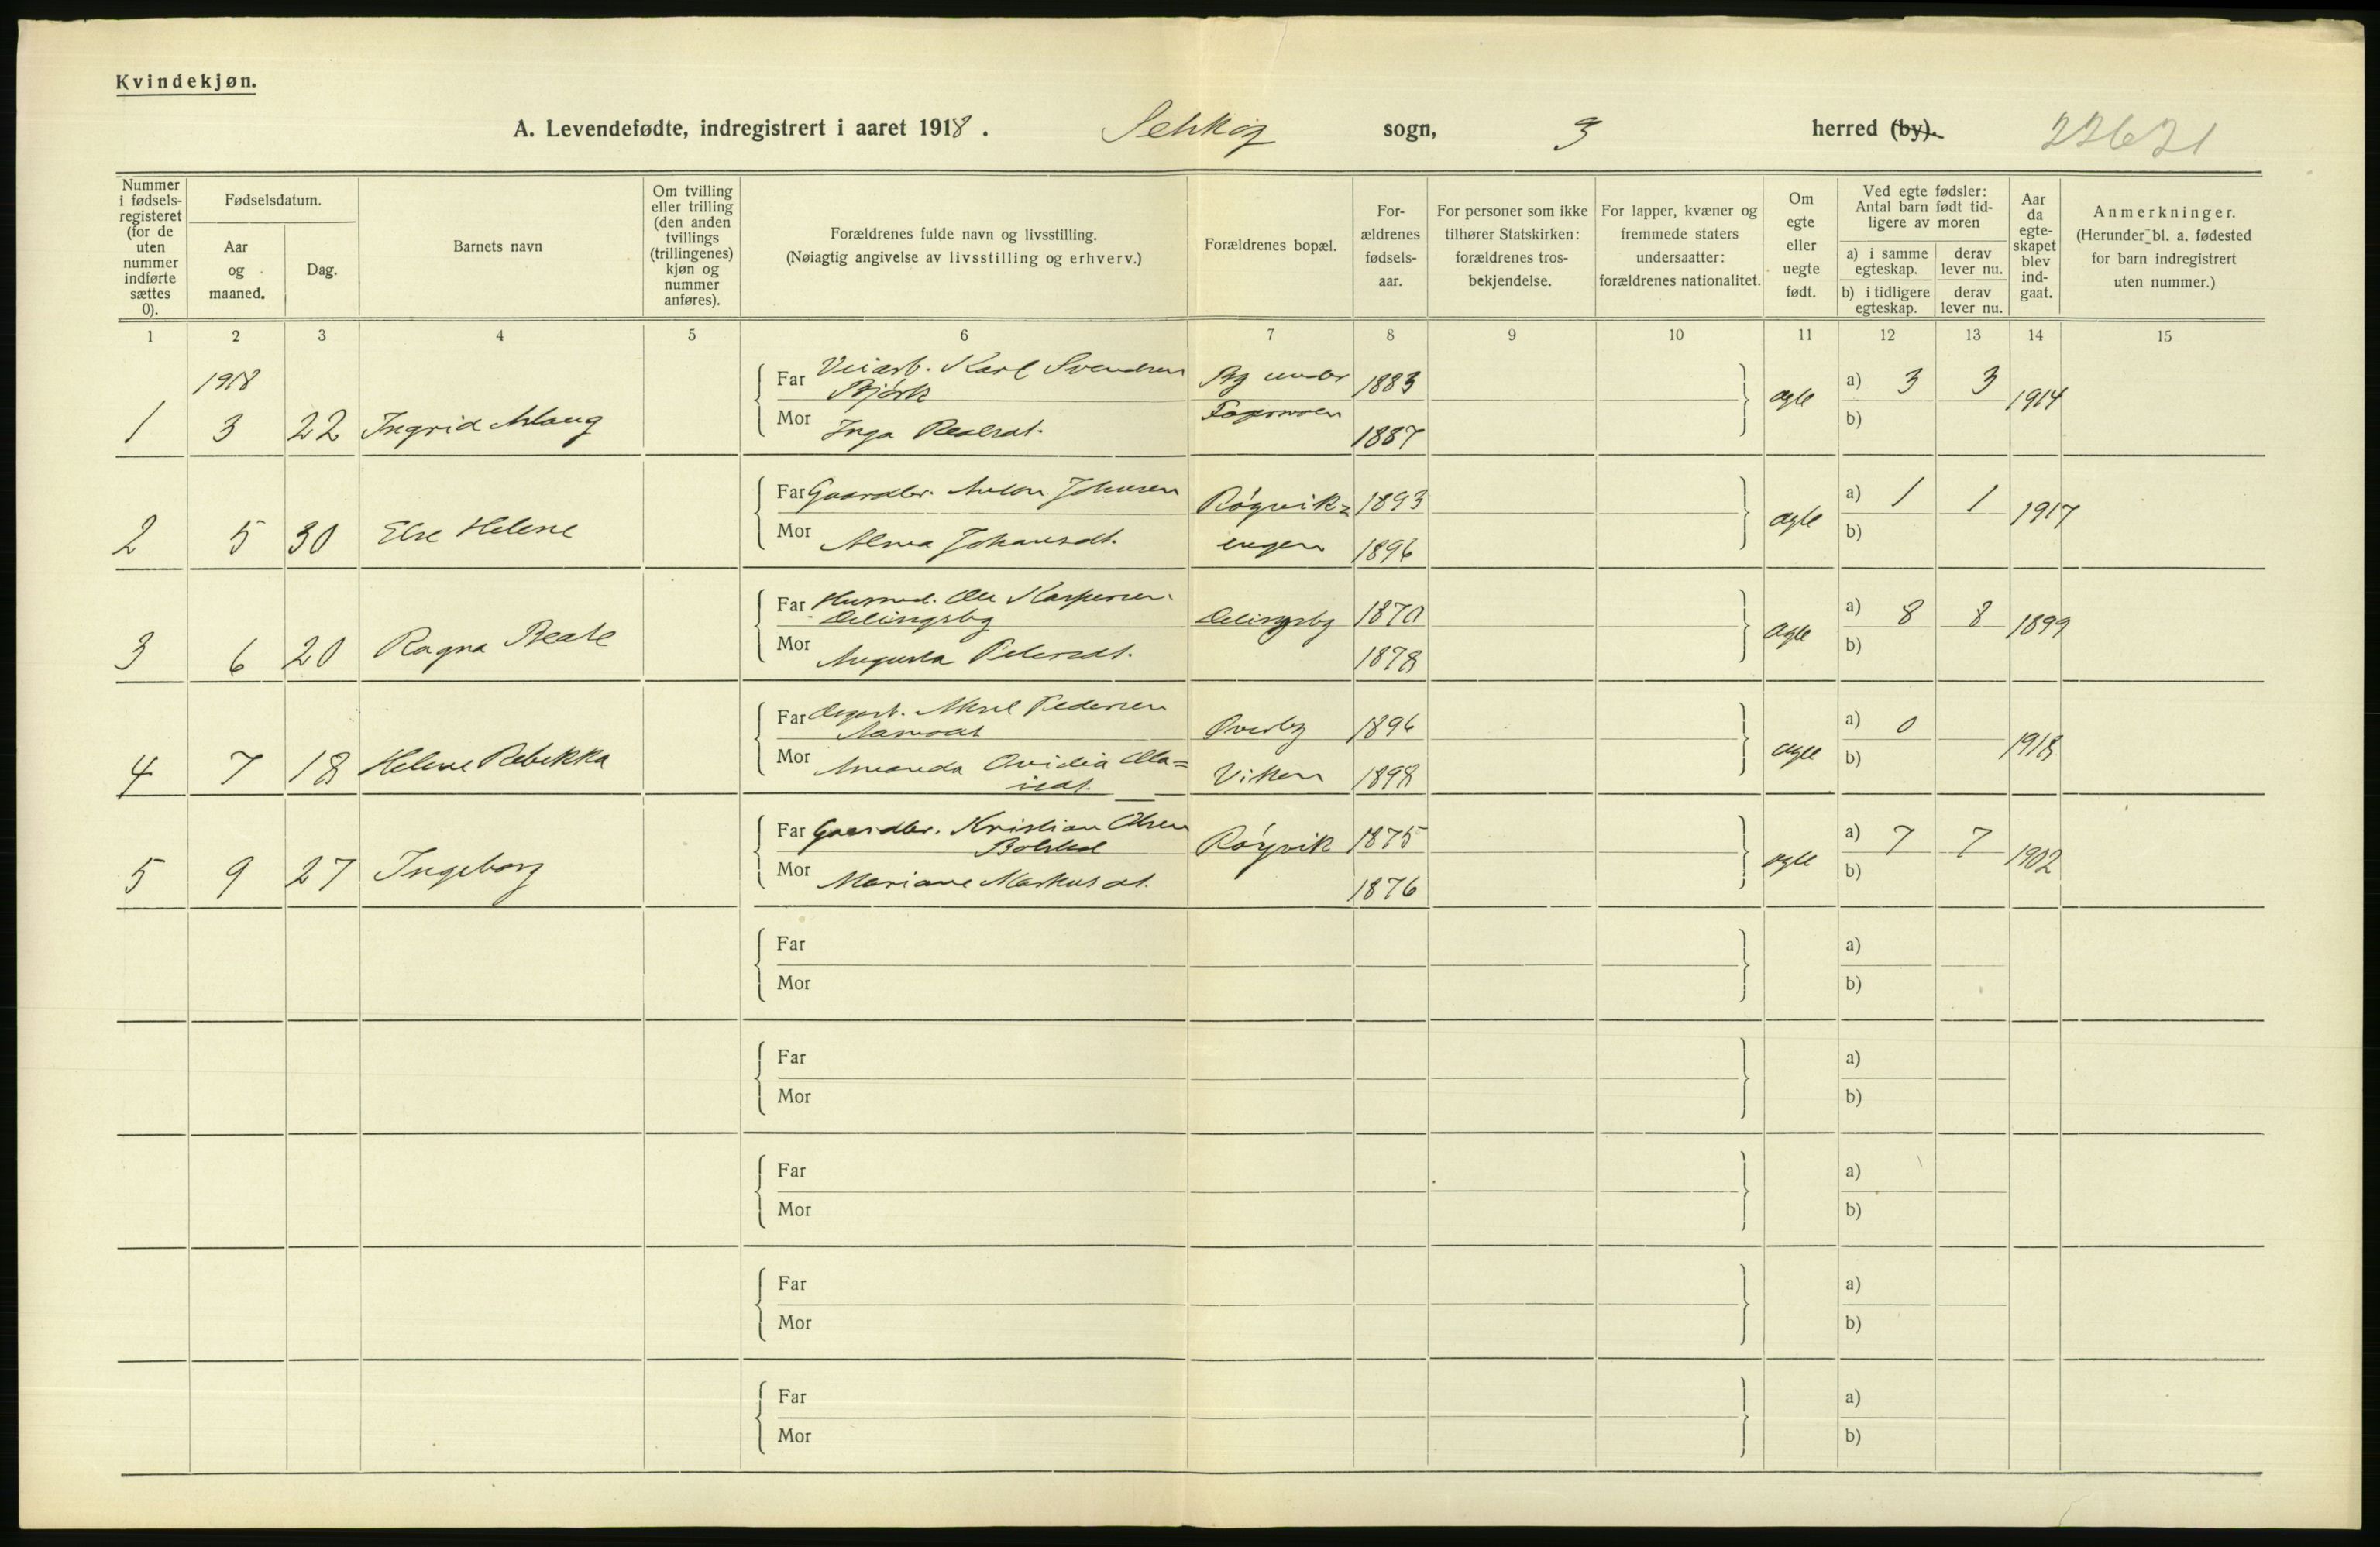 Kvindekjøn.
A. Levendefødte, indregistrert i aaret 1918. sogn, herred (by). 22621
Nummer i fødsels-registeret (for de uten nummer indførte sættes 0).
Fødselsdatum.
Aar og maaned.
Dag.
Barnets navn
Om tvilling eller trilling (den anden tvillings (trillingenes) kjøn og nummer anføres).
Forældrenes fulde navn og livsstilling.
(Nøiagtig angivelse av livsstilling og erhverv.)
Forældrenes bopæl.
For-ældrenes fødsels-aar.
For personer som ikke tilhører Statskirken: forældrenes tros-bekjendelse.
For lapper, kvæner og fremmede staters undersaatter: forældrenes nationalitet.
Om egte eller uegte født.
Ved egte fødsler: Antal barn født tid-ligere av moren
a) i samme egteskap.
derav lever nu.
b) i tidligere egteskap.
derav lever nu.
Aar da egte-skapet blev ind-gaat.
Anmerkninger.
(Herunder bl. a. fødested for barn indregistrert uten nummer.)
1 2 3 4 5 6 7 8 9 10 11 12 13 14 15
1918
Far Veiarb. Karl Svendsen Bjørk 1883 a) 3 3
1 3 22 Ingrid Aslaug ægte 1914
Mor Inga 1887 b)
Far Gaardbr. Anton Johnsen Røqvik= 1893 a) 1 1
2 5 30 Else Helene ægte 1917
Mor Alma Johansdt. engen 1896 b)
Far Husmd. Ole Kaspersen 1870 a) 8 8
3 6 20 Ragna Beate ægte 1899
Mor Augusta Pedersdt. 1878 b)
Far Aksel Pedersen Øverby 1896 a) 0
4 7 18 Helene Rebekka ægte 1918
Mor Amanda Ovidia Viken 1898 b)
Far Gaardbr. Kristian Olsen Røqvik 1875 a) 7 7
5 9 27 Ingeborg ægte 1902
Mor Mariane Markusdt. 1876 b)
Far a)
Mor b)
Far a)
Mor b)
Far a)
Mor b)
Far a)
Mor b)
Far a)
Mor b)